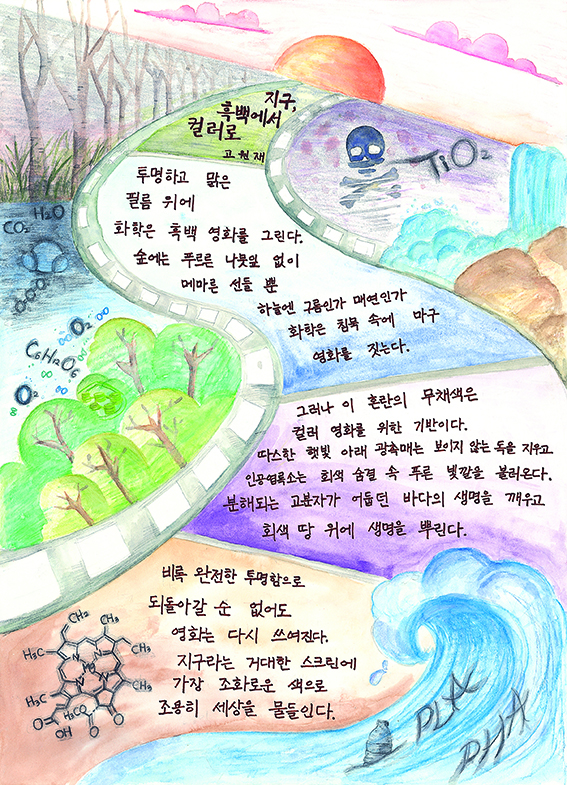 지구,
흑백에서
컬러로
고원재
TiO2
투명하고 맑은
필름 위에
화학은 흑백 영화를 그린다.
숲에는 푸르른 나뭇잎 없이
메마른 선들 뿐
하늘엔 구름인가 매연인가
화학은 침묵 속에 마구
영화를 짓는다.
H2O
CO2
O2
C6H12O6
O2
그러나 이 혼란의 무채색은
컬러 영화를 위한 기반이다.
따스한 햇빛 아래 광촉매는 보이지 않는 독을 지우고
인공엽록소는 회색 숨결 속 푸른 빛깔을 불러온다.
분해되는 고분자가 어둡던 바다의 생명을 깨우고
회색 땅 위에 생명을 뿌린다.
비록 완전한 투명함으로
되돌아갈 순 없어도
영화는 다시 쓰여진다.
지구라는 거대한 스크린에
가장 조화로운 색으로
조용히 세상을 물들인다.
CH2
H3C
CH3
CH3
H3C
N
N
Mg
N
N
H3C
CH3
O
H3CO
O
O
OH
PLA
PHA